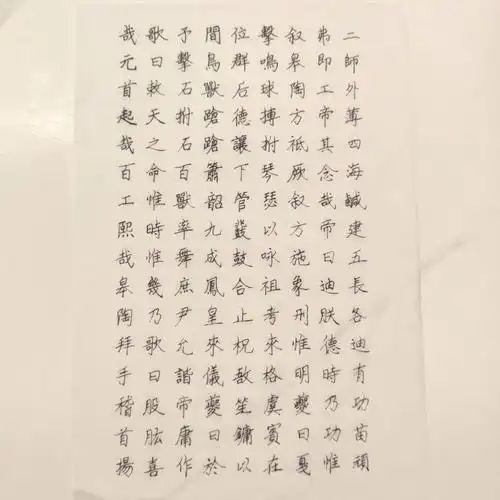 二師外薄四海鹹建五長各迪有功苗頑
弗即工帝其念哉帝曰迪朕德時乃功惟
叙皋陶方祗厥叙方施象刑惟明夔曰戛
擊鳴球搏拊琴瑟以咏祖考來格虞賓在
位群后德讓下管鼗鼓合止柷敔笙鏞以
間鳥獸蹌蹌簫韶九成鳳皇來儀夔曰於
予擊石拊石百獸率舞庶尹允諧帝庸作
歌曰敕天之命惟時惟幾乃歌曰股肱喜
哉元首起哉百工熙哉皋陶拜手稽首揚